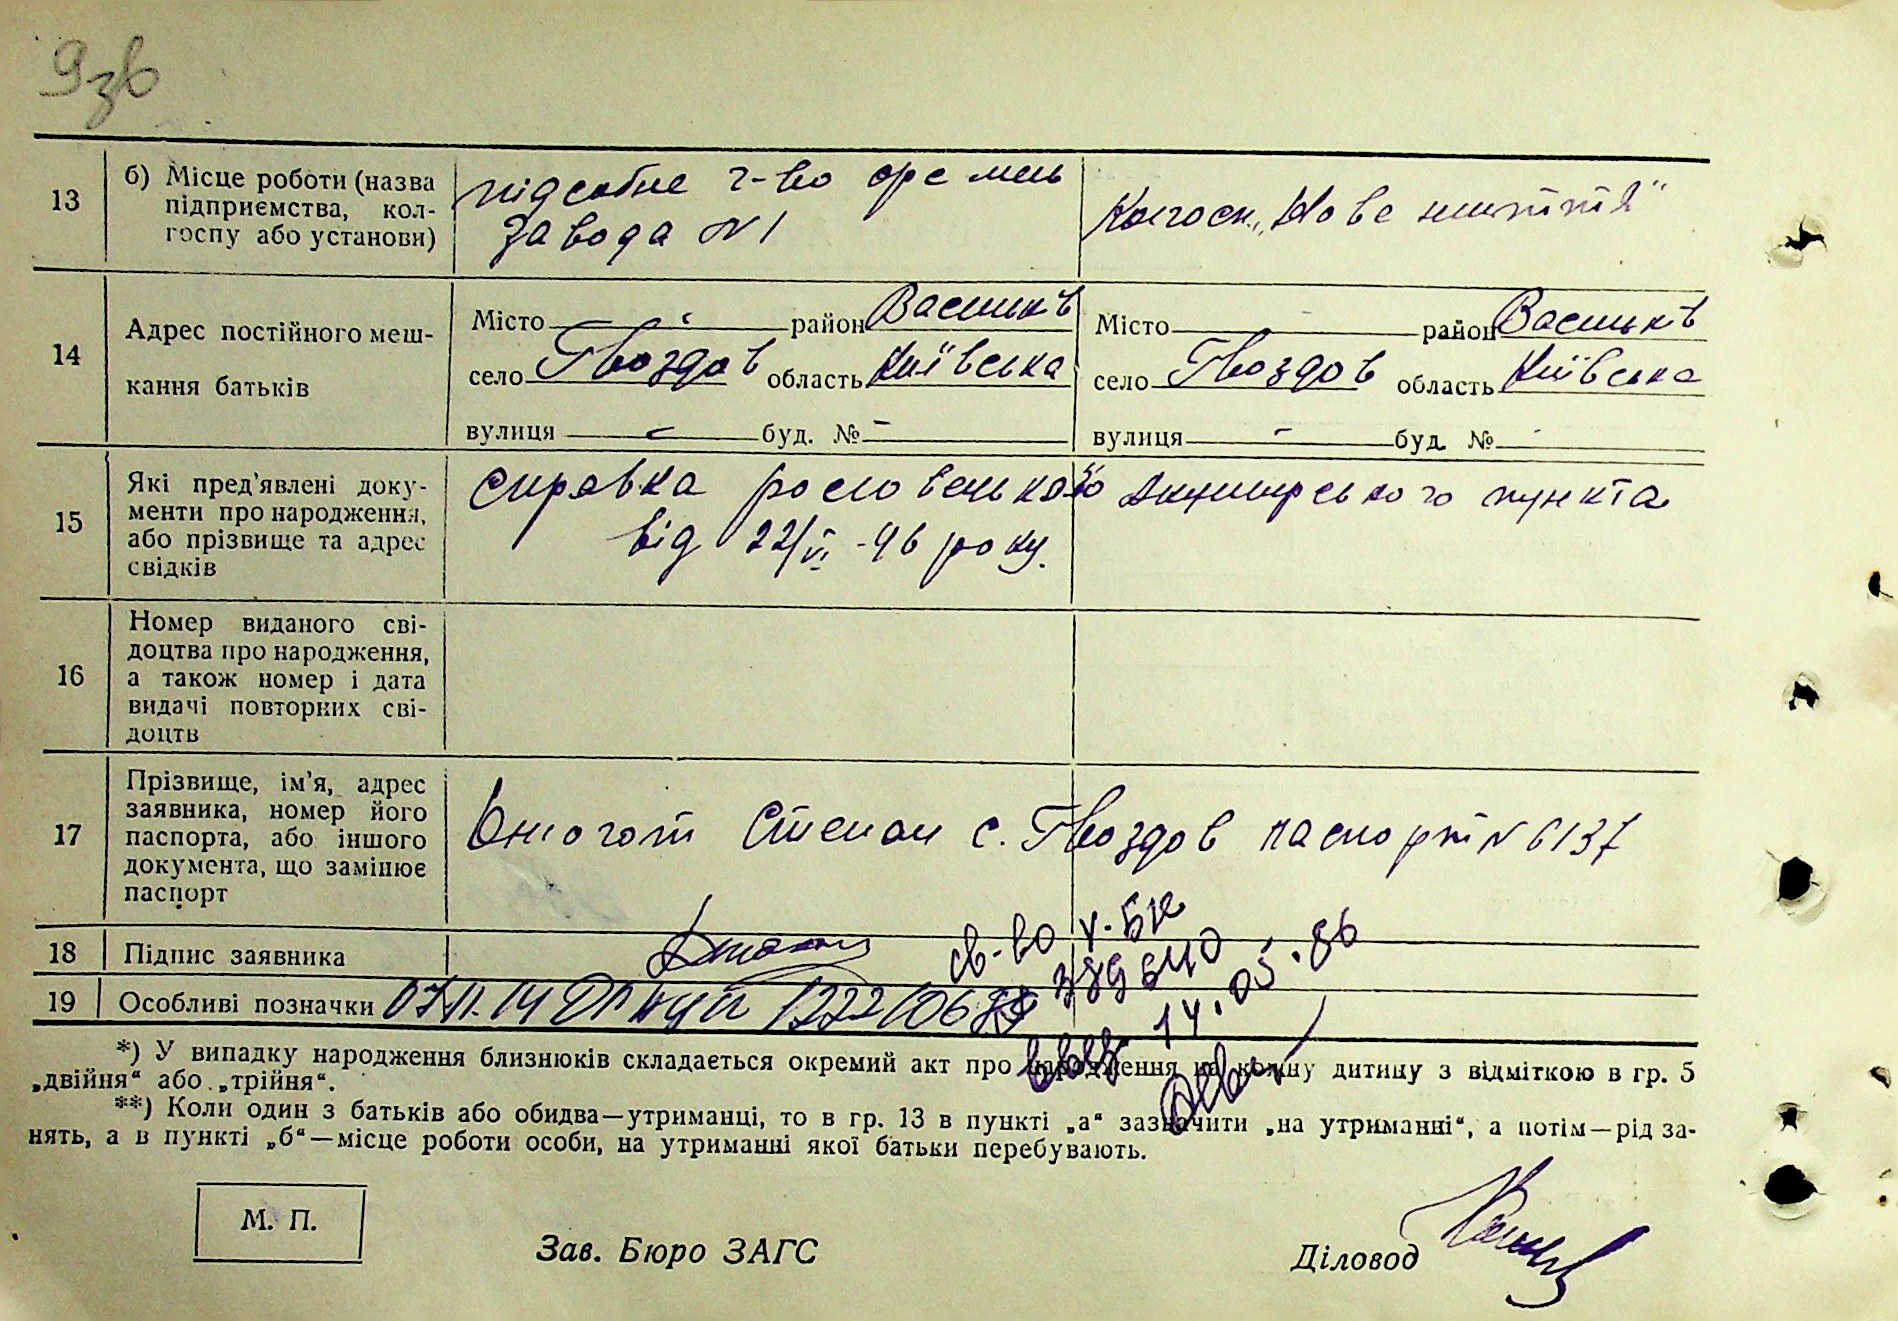 9зв
13
б) Місце роботи (назва
підприємства, кол-
госпу або установи)
підсобне г-во
завода №1
Колгосп „Нове життя"
14
Адрес постійного меш-
кання батьків
Місто район Васильків
село Гвоздов область Київська
вулиця — буд. № —
Місто район Васильків
село Гвоздов область Київська
вулиця - буд. № -
15
Які пред'явлені доку-
менти про народження,
або прізвище та адрес
свідків
справка акуширського пункта
від 22/VI-46 року.
16
Номер виданого сві-
доцтва про народження,
а також номер і дата
видачі повторних сві-
доцтв
17
Прізвище, ім'я, адрес
заявника, номер його
паспорта, або іншого
документа, що замінює
паспорт
Степан с. Гвоздов паспорт № 6137
18
Підпис заявника
св-во
14.05.86
19
Особливі позначки
*) У випадку народження близнюків складається окремий акт про народження на кожну дитину з відміткою в гр. 5
„двійня“ або „трійня“.
**) Коли один з батьків або обидва—утриманці, то в гр. 13 в пункті „а“ зазначити „на утриманні“, а потім—рід за-
нять, а в пункті „б“—місце роботи особи, на утриманні якої батьки перебувають.
М. П.
Зав. Бюро ЗАГС
Діловод